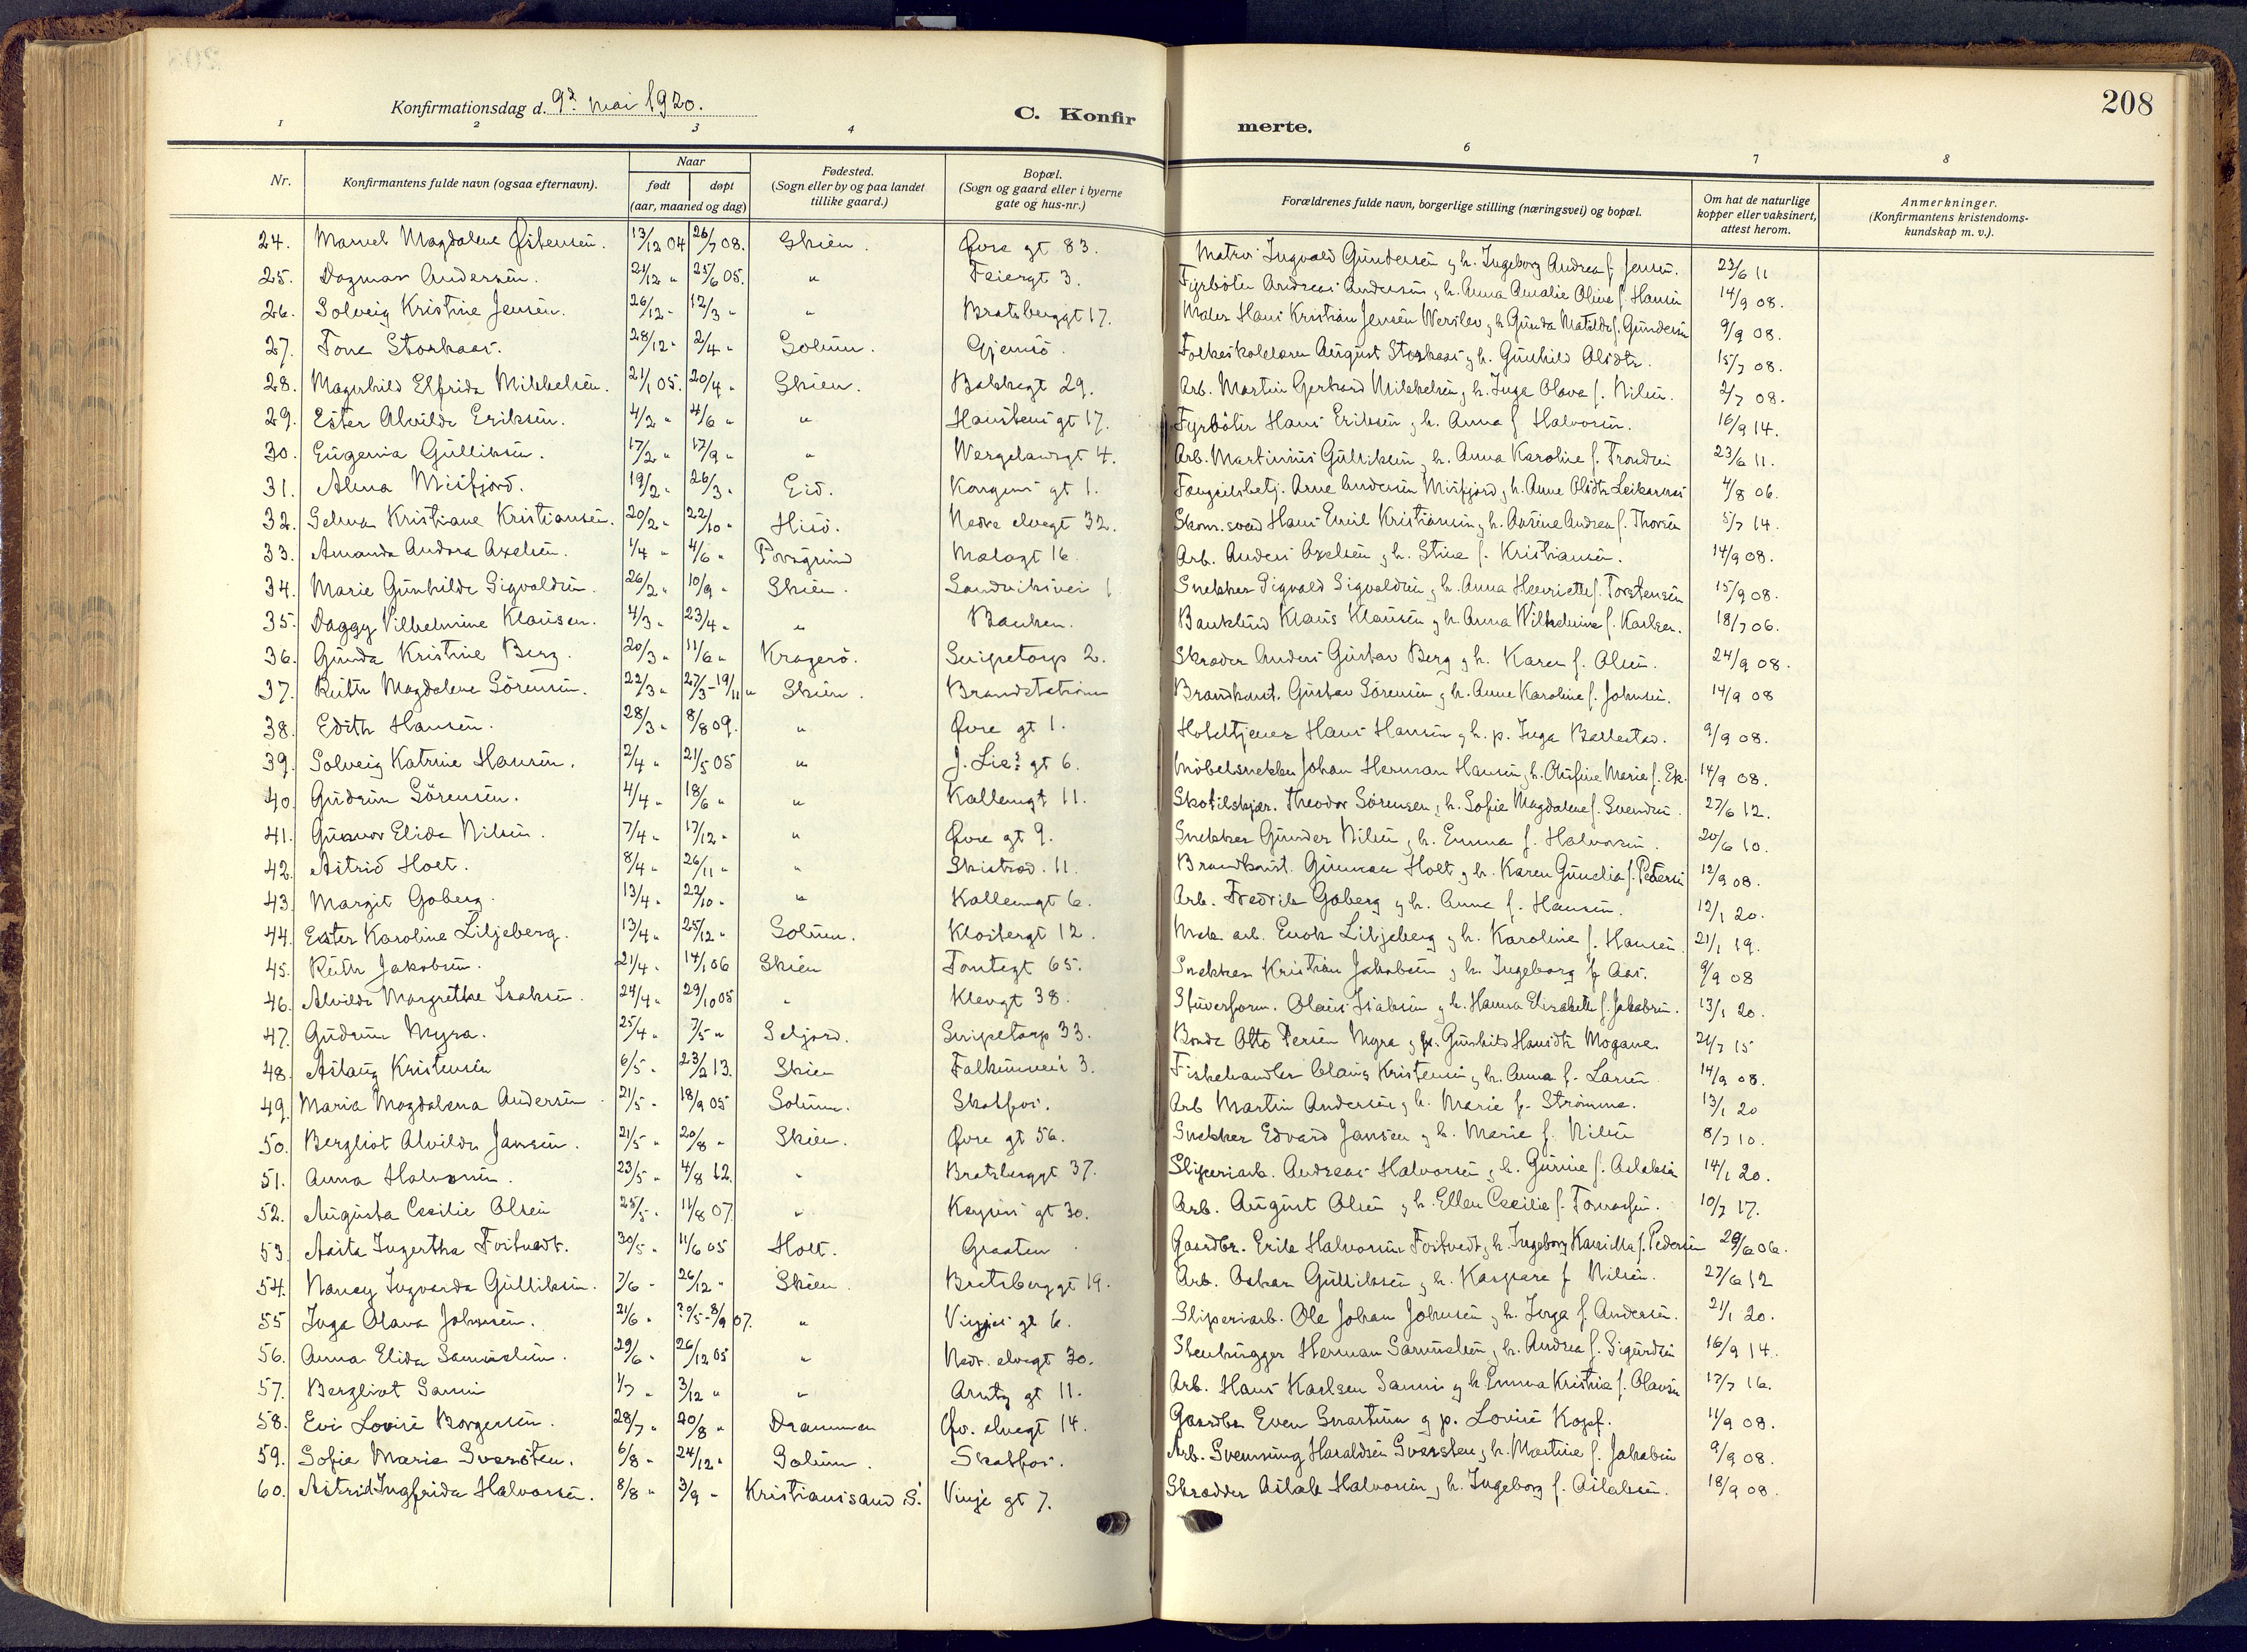 208
Konfirmationsdag d. 9? mai 1920.
C. Konfirmerte.
1 2 3 4 5 6 7 8
Nr.
Konfirmantens fulde navn (ogsaa efternavn).
Naar
født døpt
(aar, maaned og dag)
Fødested.
(Sogn eller by og paa landet
tillike gaard.)
Bopæl.
(Sogn og gaard eller i byerne
gate og hus-nr.)
Forældrenes fulde navn, borgerlige stilling (næringsvei) og bopæl.
Om hat de naturlige
kopper eller vaksinert,
attest herom.
Anmerkninger.
(Konfirmantens kristendoms-
kundskap m. v.).
24. Magdalene 13/12 04 26/7 08. Skien. Øvre gt 83. Matros Ingvald Gundersen g h. Ingeborg Andrea f. Jensen. 23/6 11
25. Dagmar Andersen. 21/12 " 25/6 05. " Feiergt 3. Fyrbøter Andreas Andersen g h. Anna Amalie Oline f. Hansen 14/9 08.
26. Solveig Kristine Jensen. 26/12 " 12/3 " " Bratsberggt 17. Maler Hans Kristian Jensen Werslev g h. Gunda Matilde f. Gundersen 9/9 08.
27. Tone Storkaas. 28/12 " 2/4 " Solum. Gjemsö. Folkeskolelærer August Storkaas g h. Gunhild Olsdtr. 15/7 08.
28. Magnhild Elfrida Mikkelsen. 21/1 05. 20/4 " Skien. Bakkegt 29. Arb. Martin Gerhard Mikkelsen g h. Inga Olava f. Nilsen. 2/7 08.
29. Ester Alvilde Eriksen. 4/2 " 4/6 " " Hansteens gt 17. Fyrbøter Hans Eriksen g h. Anna f. Halvorsen. 16/9 14.
30. Eugenia Gulliksen. 17/2 " 17/9 " " Wergelandsgt 4. Arb. Martinius Gulliksen g h. Anna Karoline f. Trondsen 23/6 11.
31. Alma Misfjord. 19/2 " 26/3 " Eid. Kongens gt 1. Fængselsbetj. Arne Andersen Misfjord g h. Anne Olsdtr Leikarnes 4/8 06.
32. Selma Kristiane Kristiansen. 20/2 " 22/10 " Hisö. Nedre elvegt 32. Skom. svend Hans Emil Kristiansen g h. Andrea f. Thorsen 5/7 14.
33. Amanda Andora Axelsen. 1/4 " 4/6 " Porsgrund Mælagt 16. Arb. Anders Axelsen g h. Stine f. Kristiansen. 14/9 08.
34. Marie Gunhilde Sigvaldsen. 26/2 " 10/9 " Skien. Sandviksvei 1 Snekker Sigvald Sigvaldsen g h. Anna Henriette f. Torstensen 15/9 08.
35. Daggy Vilhelmine Klausen. 4/3 " 23/4 " " Banken. Bankbud Klaus Klausen g h. Anna Wilhelmine f. Karlsen. 18/7 06.
36. Gunda Kristine Berg. 20/3 " 11/6 " Kragerö. Snipetorp 2. Skræder Anders Gustav Berg g h. Karen f. Olsen. 24/9 08.
37. Ruth Magdalene Sörensen. 22/3 " 27/3-19/11 " Skien. Brandstation Brandkonst. Gustav Sörensen g h. Anne Karoline f. Johnsen. 14/9 08
38. Edith Hansen. 28/3 " 8/8 09. " Øvre gt 1. Hoteltjener Hans Hansen g h. p. Inga Ballestad. 9/9 08.
39. Solveig Katrine Hansen. 2/4 " 21/5 05 " J. Lies gt 6. Möbelsnekker Johan Herman Hansen g h. Olufine Marie f. Ek. 14/9 08.
40. Gudrun Sörensen. 4/4 " 18/6 " " Kallemgt 11. Skotilskjær. Theodor Sörensen g h. Sofie Magdalene f. Svendsen. 27/6 12.
41. Gunvor Elida Nilsen. 7/4 " 17/12 " " Øvre gt 9. Snekker Gunder Nilsen g h. Emma f. Halvorsen. 20/6 10.
42. Astrid Holt. 8/4 " 26/11 " " Skistræd. 11. Brandkonst. Gunnar Holt g h. Karen Gunelia f. Pedersen 12/9 08.
43. Margit Goberg. 13/4 " 22/10 " " Kallemgt 6. Arb. Fredrik Goberg g h. Anna f. Hansen. 12/1 20.
44. Ester Karoline Liljeberg. 13/4 " 25/12 " Solum. Klostergt 12. Mek. arb. Enok Liljeberg g h. Karoline f. Hansen 21/1 19.
45. Ruth Jakobsen. 21/4 " 14/1 06 Skien Tomtegt 65. Snekker Kristian Jakobsen g h. Ingeborg f. Aas. 9/9 08
46. Alvilde Margrethe Isaksen. 24/4 " 29/10 05 " Klevgt 38. Stuverform. Olaus Isaksen g h. Hanna Elisabeth f. Jakobsen. 13/1 20.
47. Gudrun Myra. 25/4 " 7/5 " Seljord. Snipetorp 33. Bonde Otto Persen Myra g h. Gunhild Hansdtr Mogane. 21/7 15
48. Aslaug Kristensen 6/5 " 23/2 13. Skien Falkumvei 3. Fiskehandler Claus Kristensen g h. Anna f. Larsen 14/9 08.
49. Maria Magdalena Andersen. 21/5 " 18/9 05 Solum. Skotfos. Arb Martin Andersen g h. Marie f. Strömme. 13/1 20
50. Bergliot Alvilde Jansen. 21/5 " 20/8 " Skien. Øvre gt 56. Snekker Edvard Jansen g h. Marie f. Nilsen 8/7 10.
51. Anna Halvorsen. 23/5 " 4/8 12. " Bratsberggt 37. Sliperiarb. Andreas Halvorsen g h. Gurine f. Aslaksen 14/1 20.
52. Augusta Cecilie Olsen 25/5 " 11/8 07. " Keysers gt 30. Arb. August Olsen g h. Ellen Cecilie f. Tomassen. 10/7 17.
53. Aasta Ingertha Fostvedt. 30/5 " 11/6 05 Holt. Graaten. Gaardbr. Erik Halvorsen Fostvedt g h. Ingeborg Kamilla f. Pedersen 29/6 06.
54. Nancy Ingvarda Gulliksen. 7/6 " 26/12 " Skien. Bratsberggt 19. Arb. Oskar Gulliksen g h. Kaspara f. Nilsen. 27/6 12
55 Inga Olava Johnsen. 21/6 " 20/5-8/9 07. " Vinjes gt 6. Sliperiarb. Ole Johan Johnsen g h. Inga f. Andersen. 21/1 20.
56. Anna Elida Samuelsen. 29/6 " 26/12 05 " Nedr. elvegt 30. Stenhugger Herman Samuelsen g h. Andrea f. Sigurdsen 16/9 14.
57. Bergliot Sanni 1/7 " 3/12 " " Arntz gt 11. Arb. Hans Karlsen Sanni g h. Emma Kristine f. Olavsen 17/7 16.
58. Evi Lovise Borgersen. 28/7 " 20/8 " Drammen Øv. elvegt 14. Gaardbr. Even g p. Lovise Kopf. 11/9 08.
59. Sofie Marie Sversten. 6/8 " 24/12 " Solum. Skotfos. Arb. Svenning Haraldsen g h. Martine f. Jakobsen 9/9 08.
60. Astrid Ingfrida Halvorsen. 8/8 " 3/9 " Kristianssand S. Vinje gt 7. Skrædder Aslak Halvorsen g h. Ingeborg f. Aslaksen. 18/9 08.